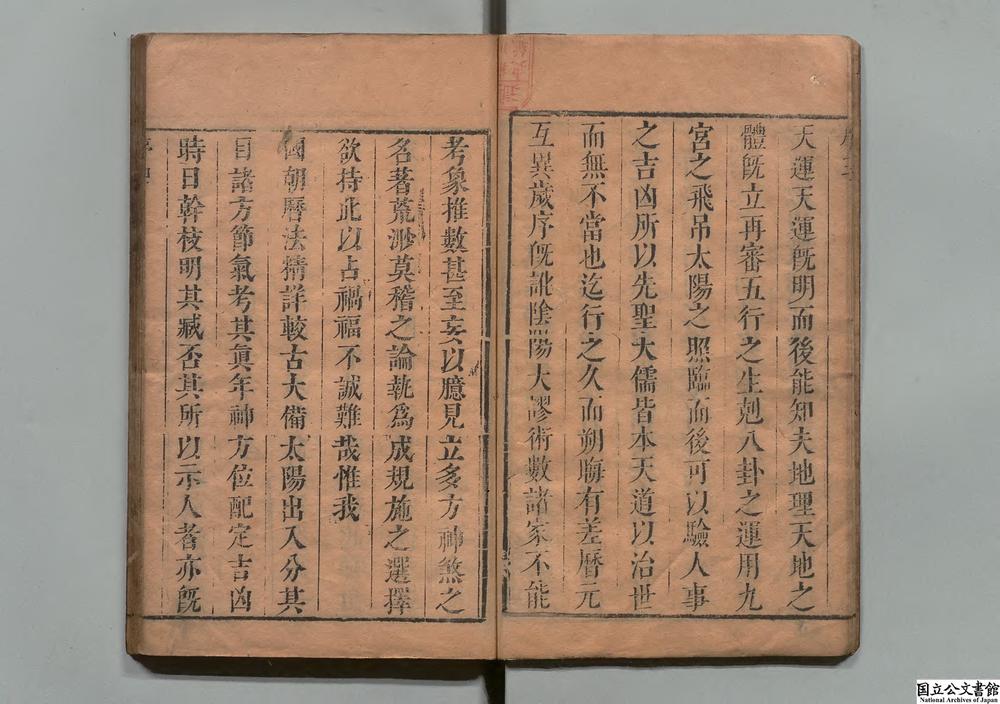 天運天運旣明而後能知夫地理天地之
體旣立再審五行之生剋八卦之運用九
宮之飛吊太陽之照臨而後可以驗人事
之吉凶所以先聖大儒皆本天道以治世
而無不當也迄行之久而朔晦有差曆元
互異歲序旣訛陰陽大謬術數諸家不能
考象推數甚至妄以臆見立多方神煞之
名著荒渺莫稽之論執爲成規施之選擇
欲持此以占禍福不誠難哉惟我
國朝曆法精詳較古大備太陽出入分其
目諸方節氣考其眞年神方位配定吉凶
時日幹枝明其臧否其所以示人者亦旣
国立公文書館
National Archives of Japan